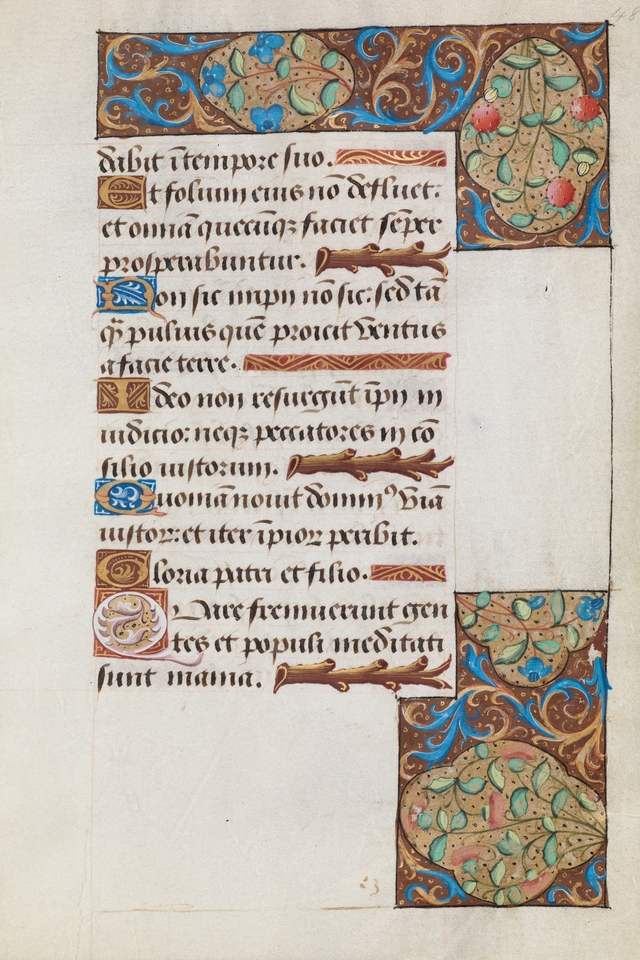 dabit ītempore suo.
Et folium eius nō defluet:
et omnīa quecūqꝫ faciet sēper
prosperabuntur.
Non sic impii nō sic: sed tā
qꝫ puluis quē proicit ventus
a facie terre.
Ideo non resurgūt īpii in
iudicio: neqꝫ peccatores in cō
silio iustorum.
Quoniā nouit domin⁹ viā
iustoꝝ: et iter īpioꝝ peribit.
Gloria patri et filio.
Quare fremuerunt gen
tes et populi meditati
sunt inania.